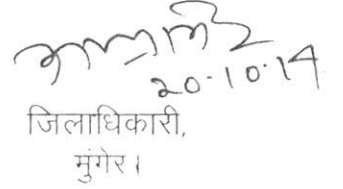 20.10.14
जिलाधिकारी,
मुंगेर।